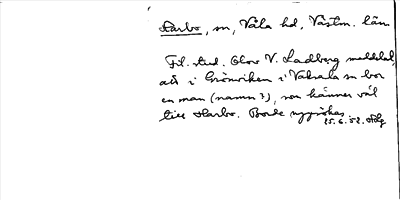 Harbo, sn, Våla hd, Västm. län
Fil. stud. Olov V. Ladberg meddelat,
att i Grönviken i Vaksala sn bor
en man (namn?), som känner väl
till Harbo. Borde uppsökas
25.6.52.